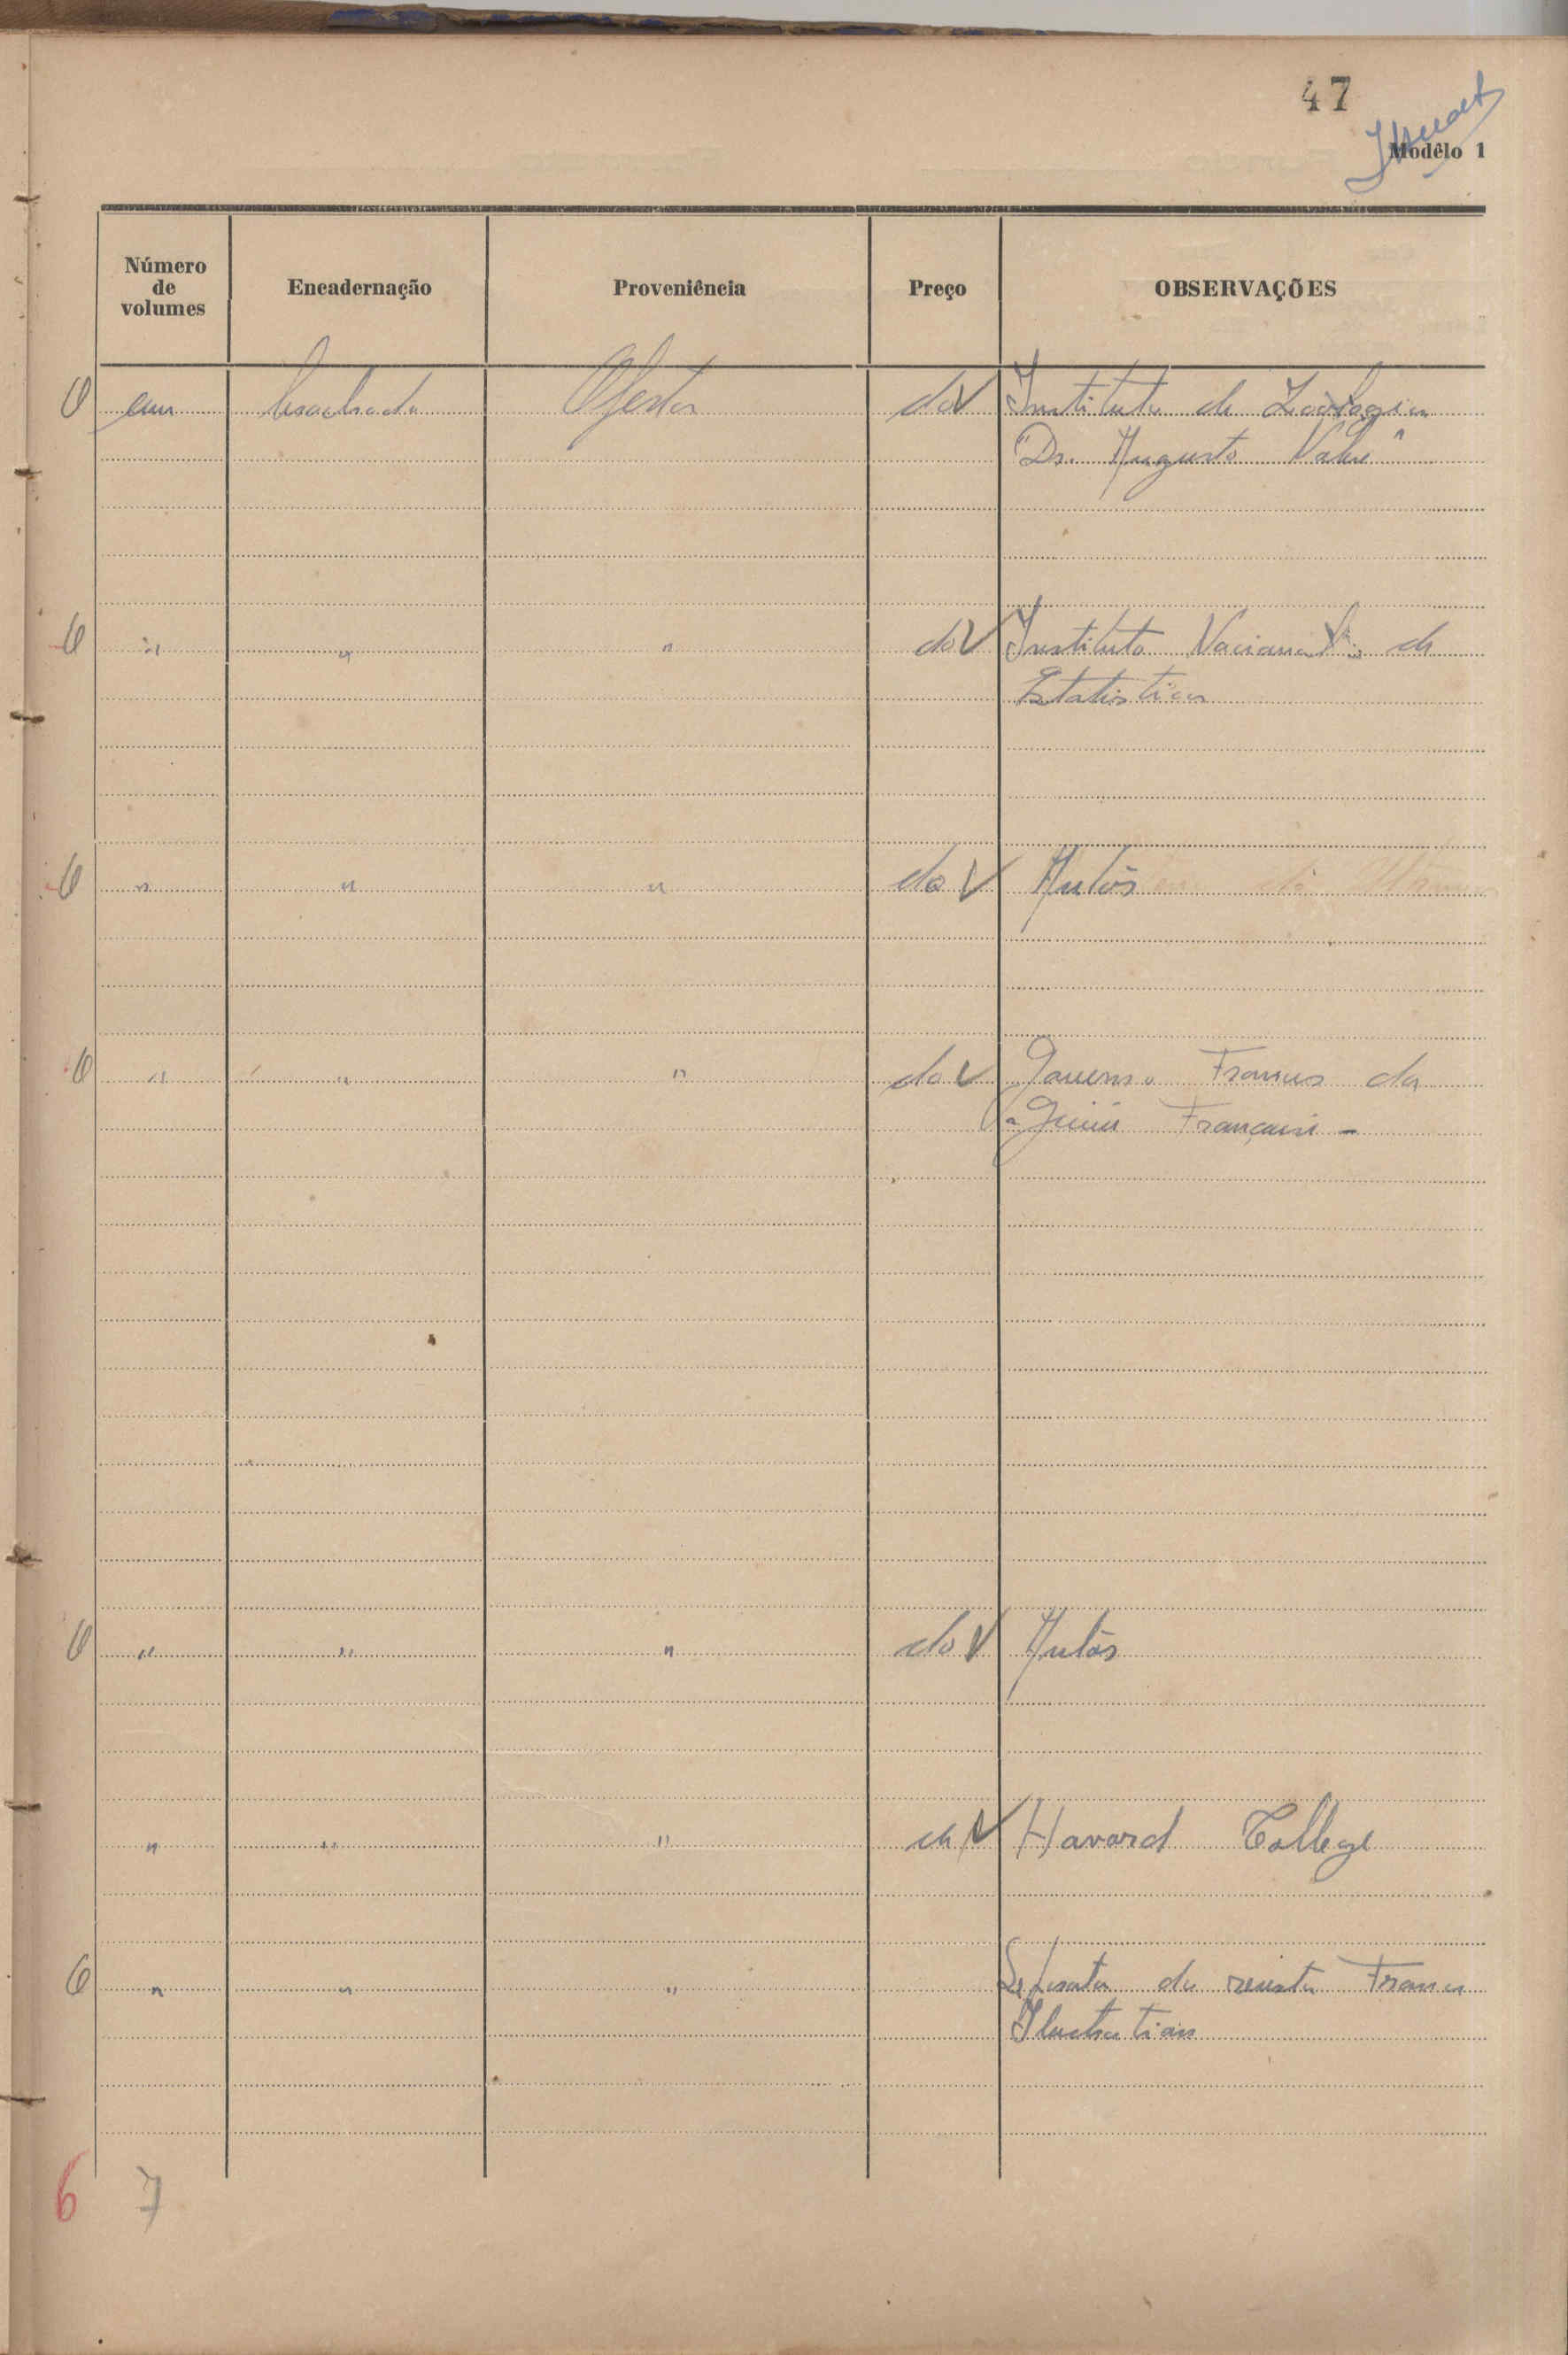 47
Modêlo 1
Número de volumes Encadernação Proveniência Preço OBSERVAÇÕES
um brochado Oferta do V Instituto de Zoologia
"Dr. Augusto Nobre"
" " " do V Instituto Nacional de
Estatistica
" " " do V Autôr
" " " do V Governo Francês da
Guiné Française -
" " " do V Autôr
" " " de V Havard College
" " " Separata da revista France
Ilustration
6 7